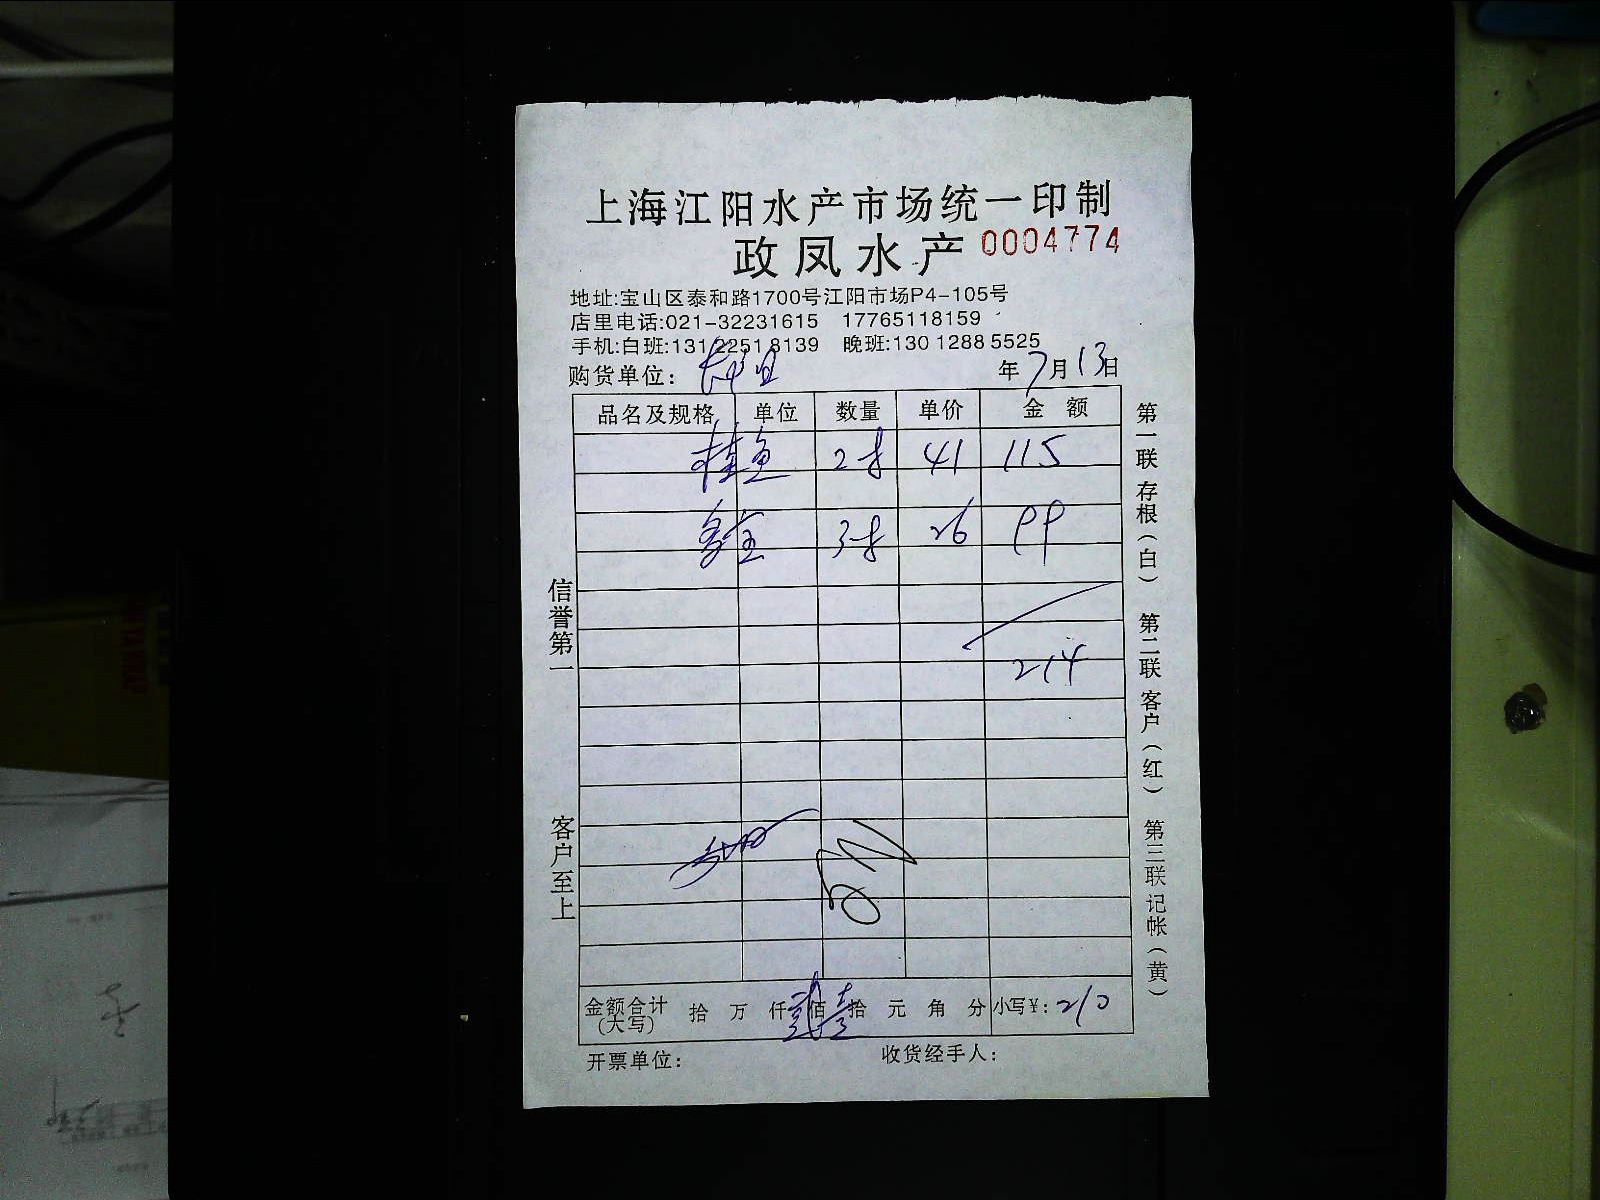 上海江阳水产市场统一印制
政凤水产 0004774
地址:宝山区泰和路1700号江阳市场P4-105号
店里电话:021-32231615 17765118159
手机:白班:131 2251 8139 晚班:130 1288 5525
购货单位: 年7月13日
品名及规格 单位 数量 单价 金额
桂鱼 2条 41 115
3条 26 99
214
金额合计(大写) 拾 万 仟 贰佰 壹拾 元 角 分 小写¥: 210
开票单位: 收货经手人:
信誉第一
客户至上
第一联 存根(白) 第二联 客户(红) 第三联 记帐(黄)